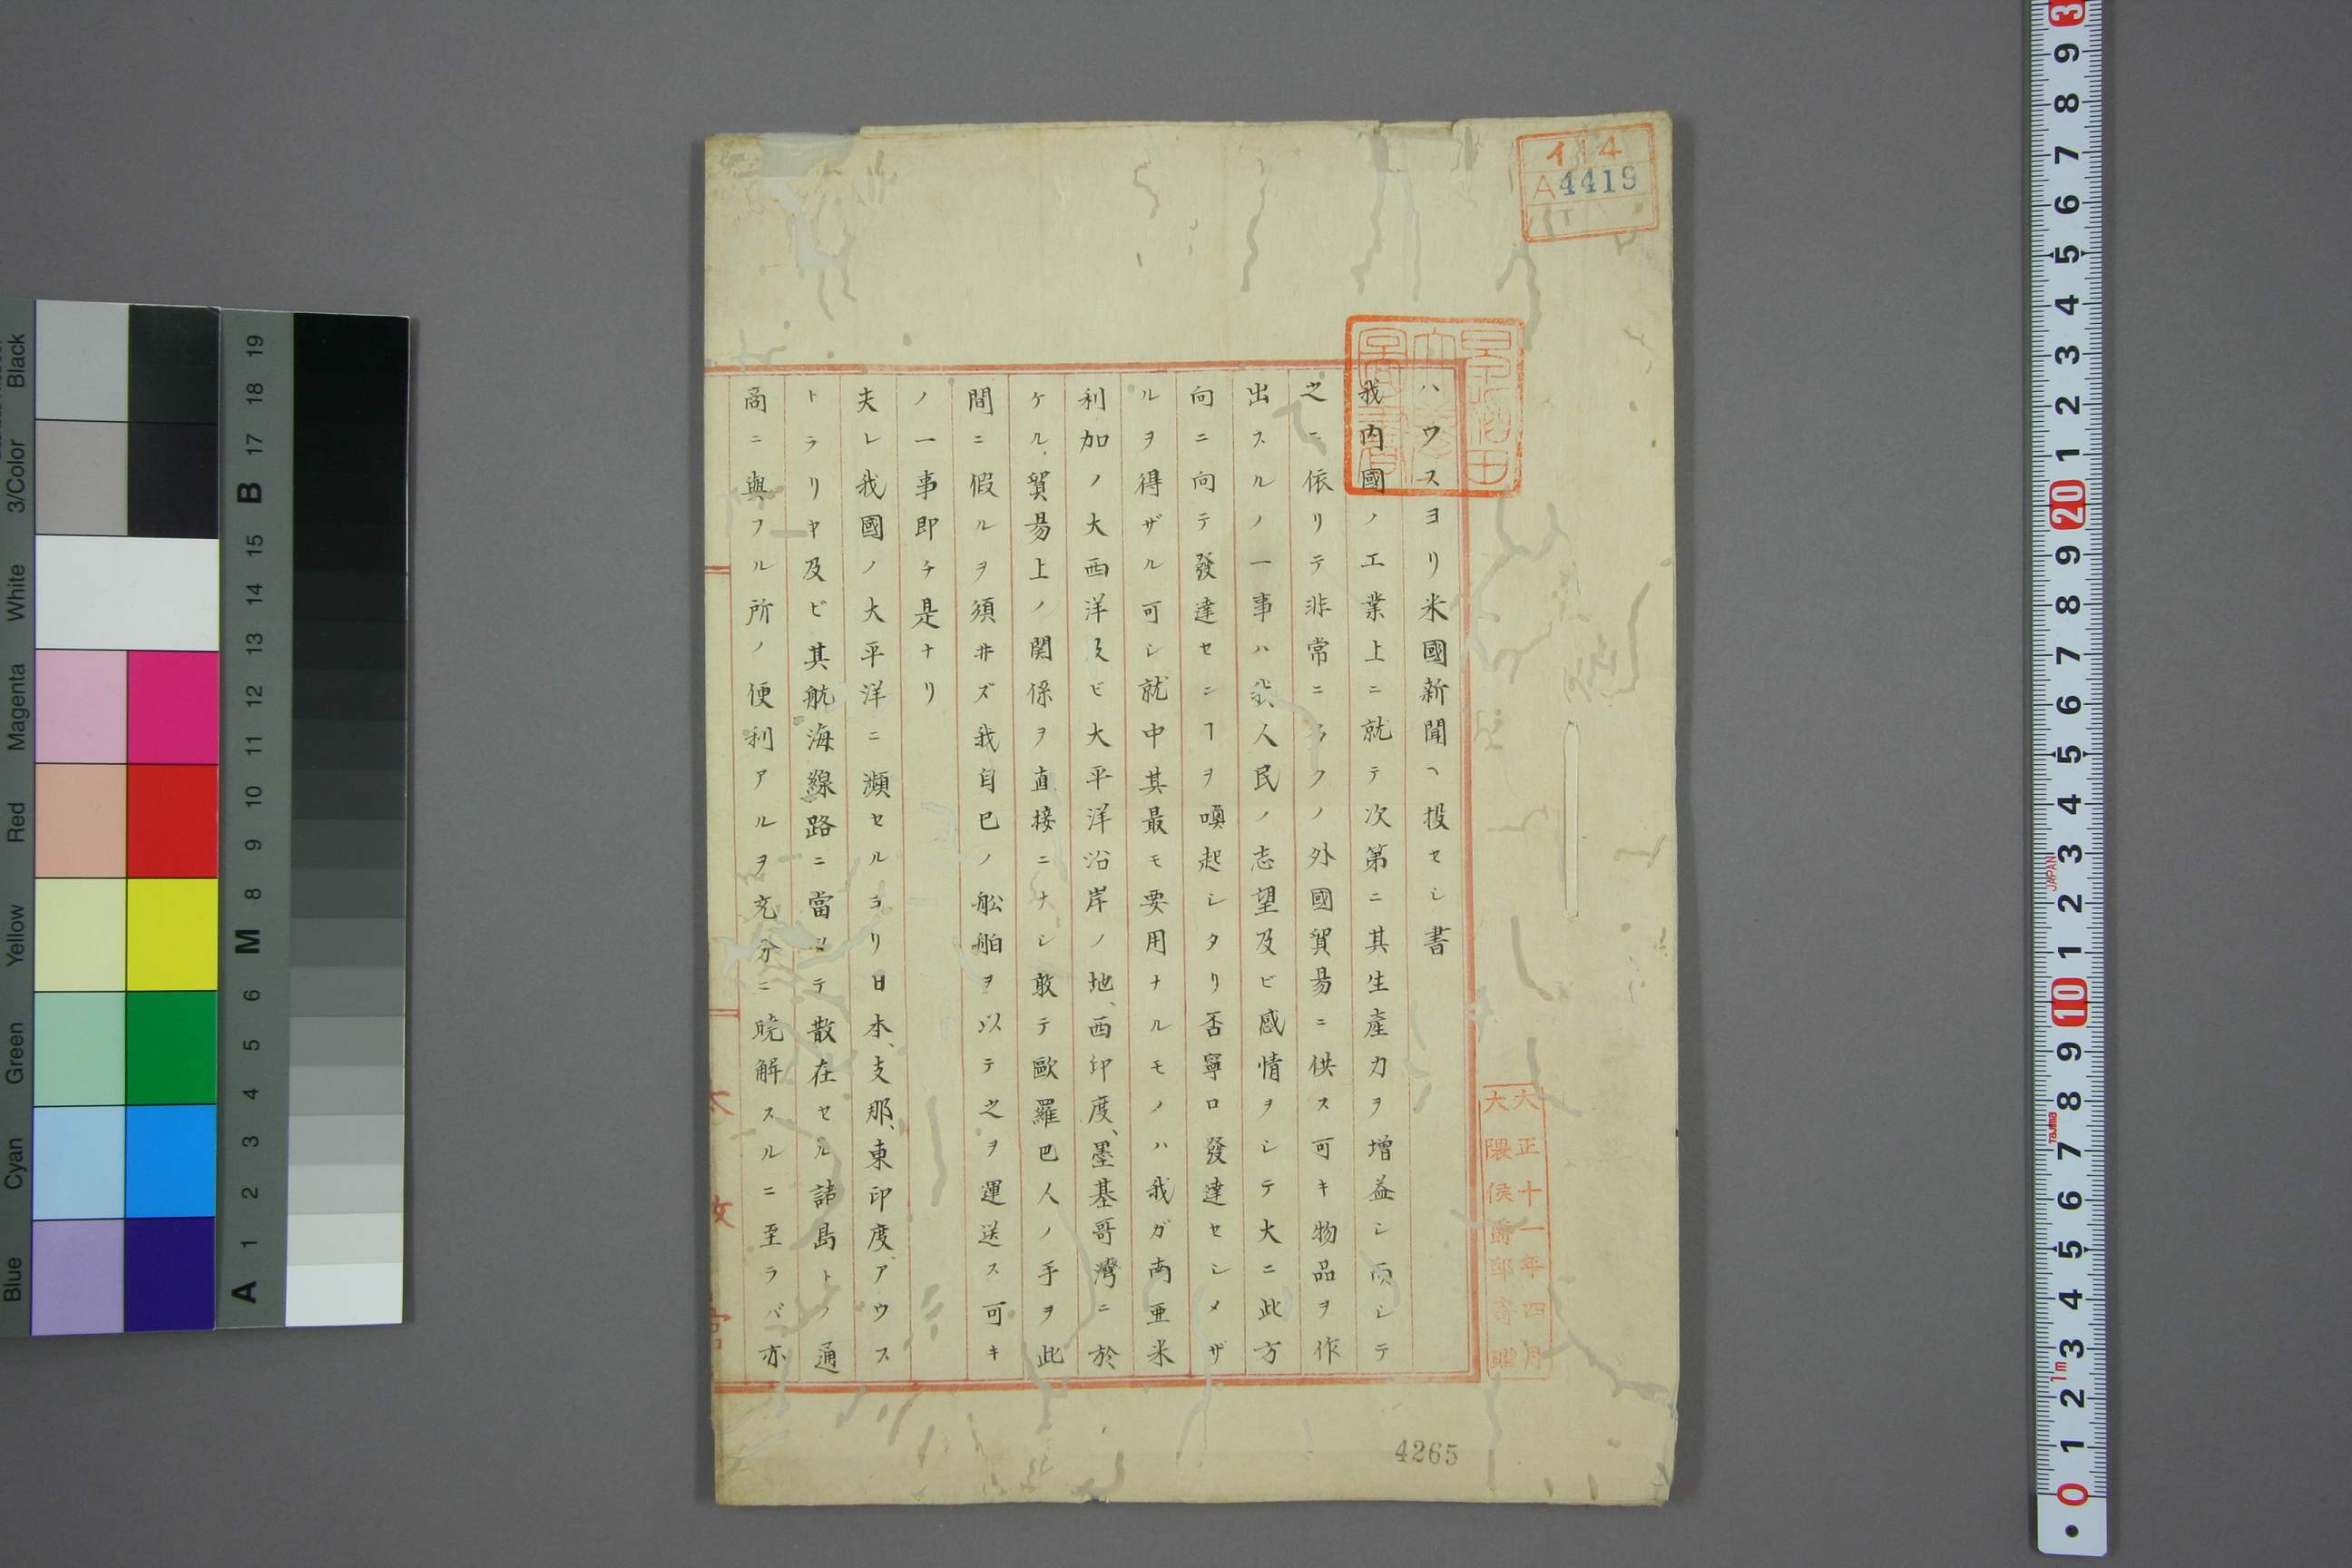 イ14
A4419
1
ハウスヨリ米國新聞ヘ投セシ書
我内國ノ工業上ニ就テ次第ニ其生産力ヲ增益シ而シテ
之ニ依リテ非常ニ多クノ外國貿易ニ供ス可キ物品ヲ作
出スルノ一事ハ人民ノ志望及ビ感情ヲシテ大ニ此方
向ニ向テ發達センヿヲ喚起シタリ否寧ロ發達セシメザ
ルヲ得ザル可シ就中其最モ要用ナルモノハ我ガ南亜米
利加ノ大西洋及ビ大平洋沿岸ノ地、西印度、墨基哥灣ニ於
ケル貿易上ノ関係ヲ直接ニナシ敢テ歐羅巴人ノ手ヲ此
間ニ假ルヲ須ヰズ我自己ノ舩舶ヲ以テ之ヲ運送ス可キ
ノ一事即チ是ナリ
夫レ我國ノ大平洋ニ瀕セルヨリ日本、支那、東印度、アウス
トラリヤ及ビ其航海線路ニ當リテ散在セル諸島トノ通
商ニ與フル所ノ便利アルヲ充分ニ曉解スルニ至ラバ亦
大正十一年四月
大隈侯爵邸寄贈
4265
Blue Cyan Green Yellow Red Magenta White 3/Color Black
A 1 2 3 4 5 6 M 8 9 10 11 12 13 14 15 B 17 18 19
3 9 8 7 6 5 4 3 2 1 20 9 8 7 6 5 4 3 2 1 10 9 8 7 6 5 4 3 2 1 0
JAPAN
Tajima
1m